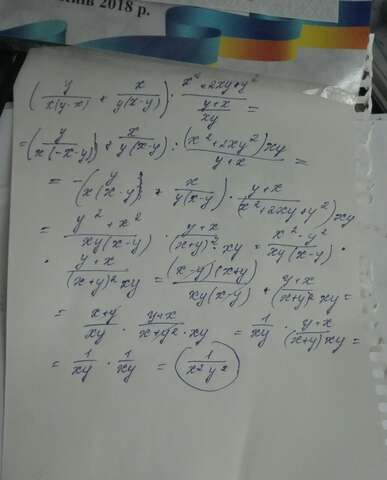 Київ 2018 р.
(y/x(y-x) + x/y(x-y)) : x²+2xy+y² / (y+x/xy) =
= (y/x(-x-y)) + x/y(x-y) : (x²+2xy²)xy / y+x =
= -(y/x(x-y)) + x/y(x-y) · y+x/(x²+2xy+y²)xy
= y²+x²/xy(x-y) · y+x/(x+y)² xy = x²-y²/xy(x-y) ·
· y+x/(x+y)² xy = (x-y)(x+y)/xy(x-y) · y+x/(x+y)² xy =
= x+y/xy · y+x/x+y)² · xy = 1/xy · y+x/(x+y)xy =
= 1/xy · 1/xy = 1/x²y²